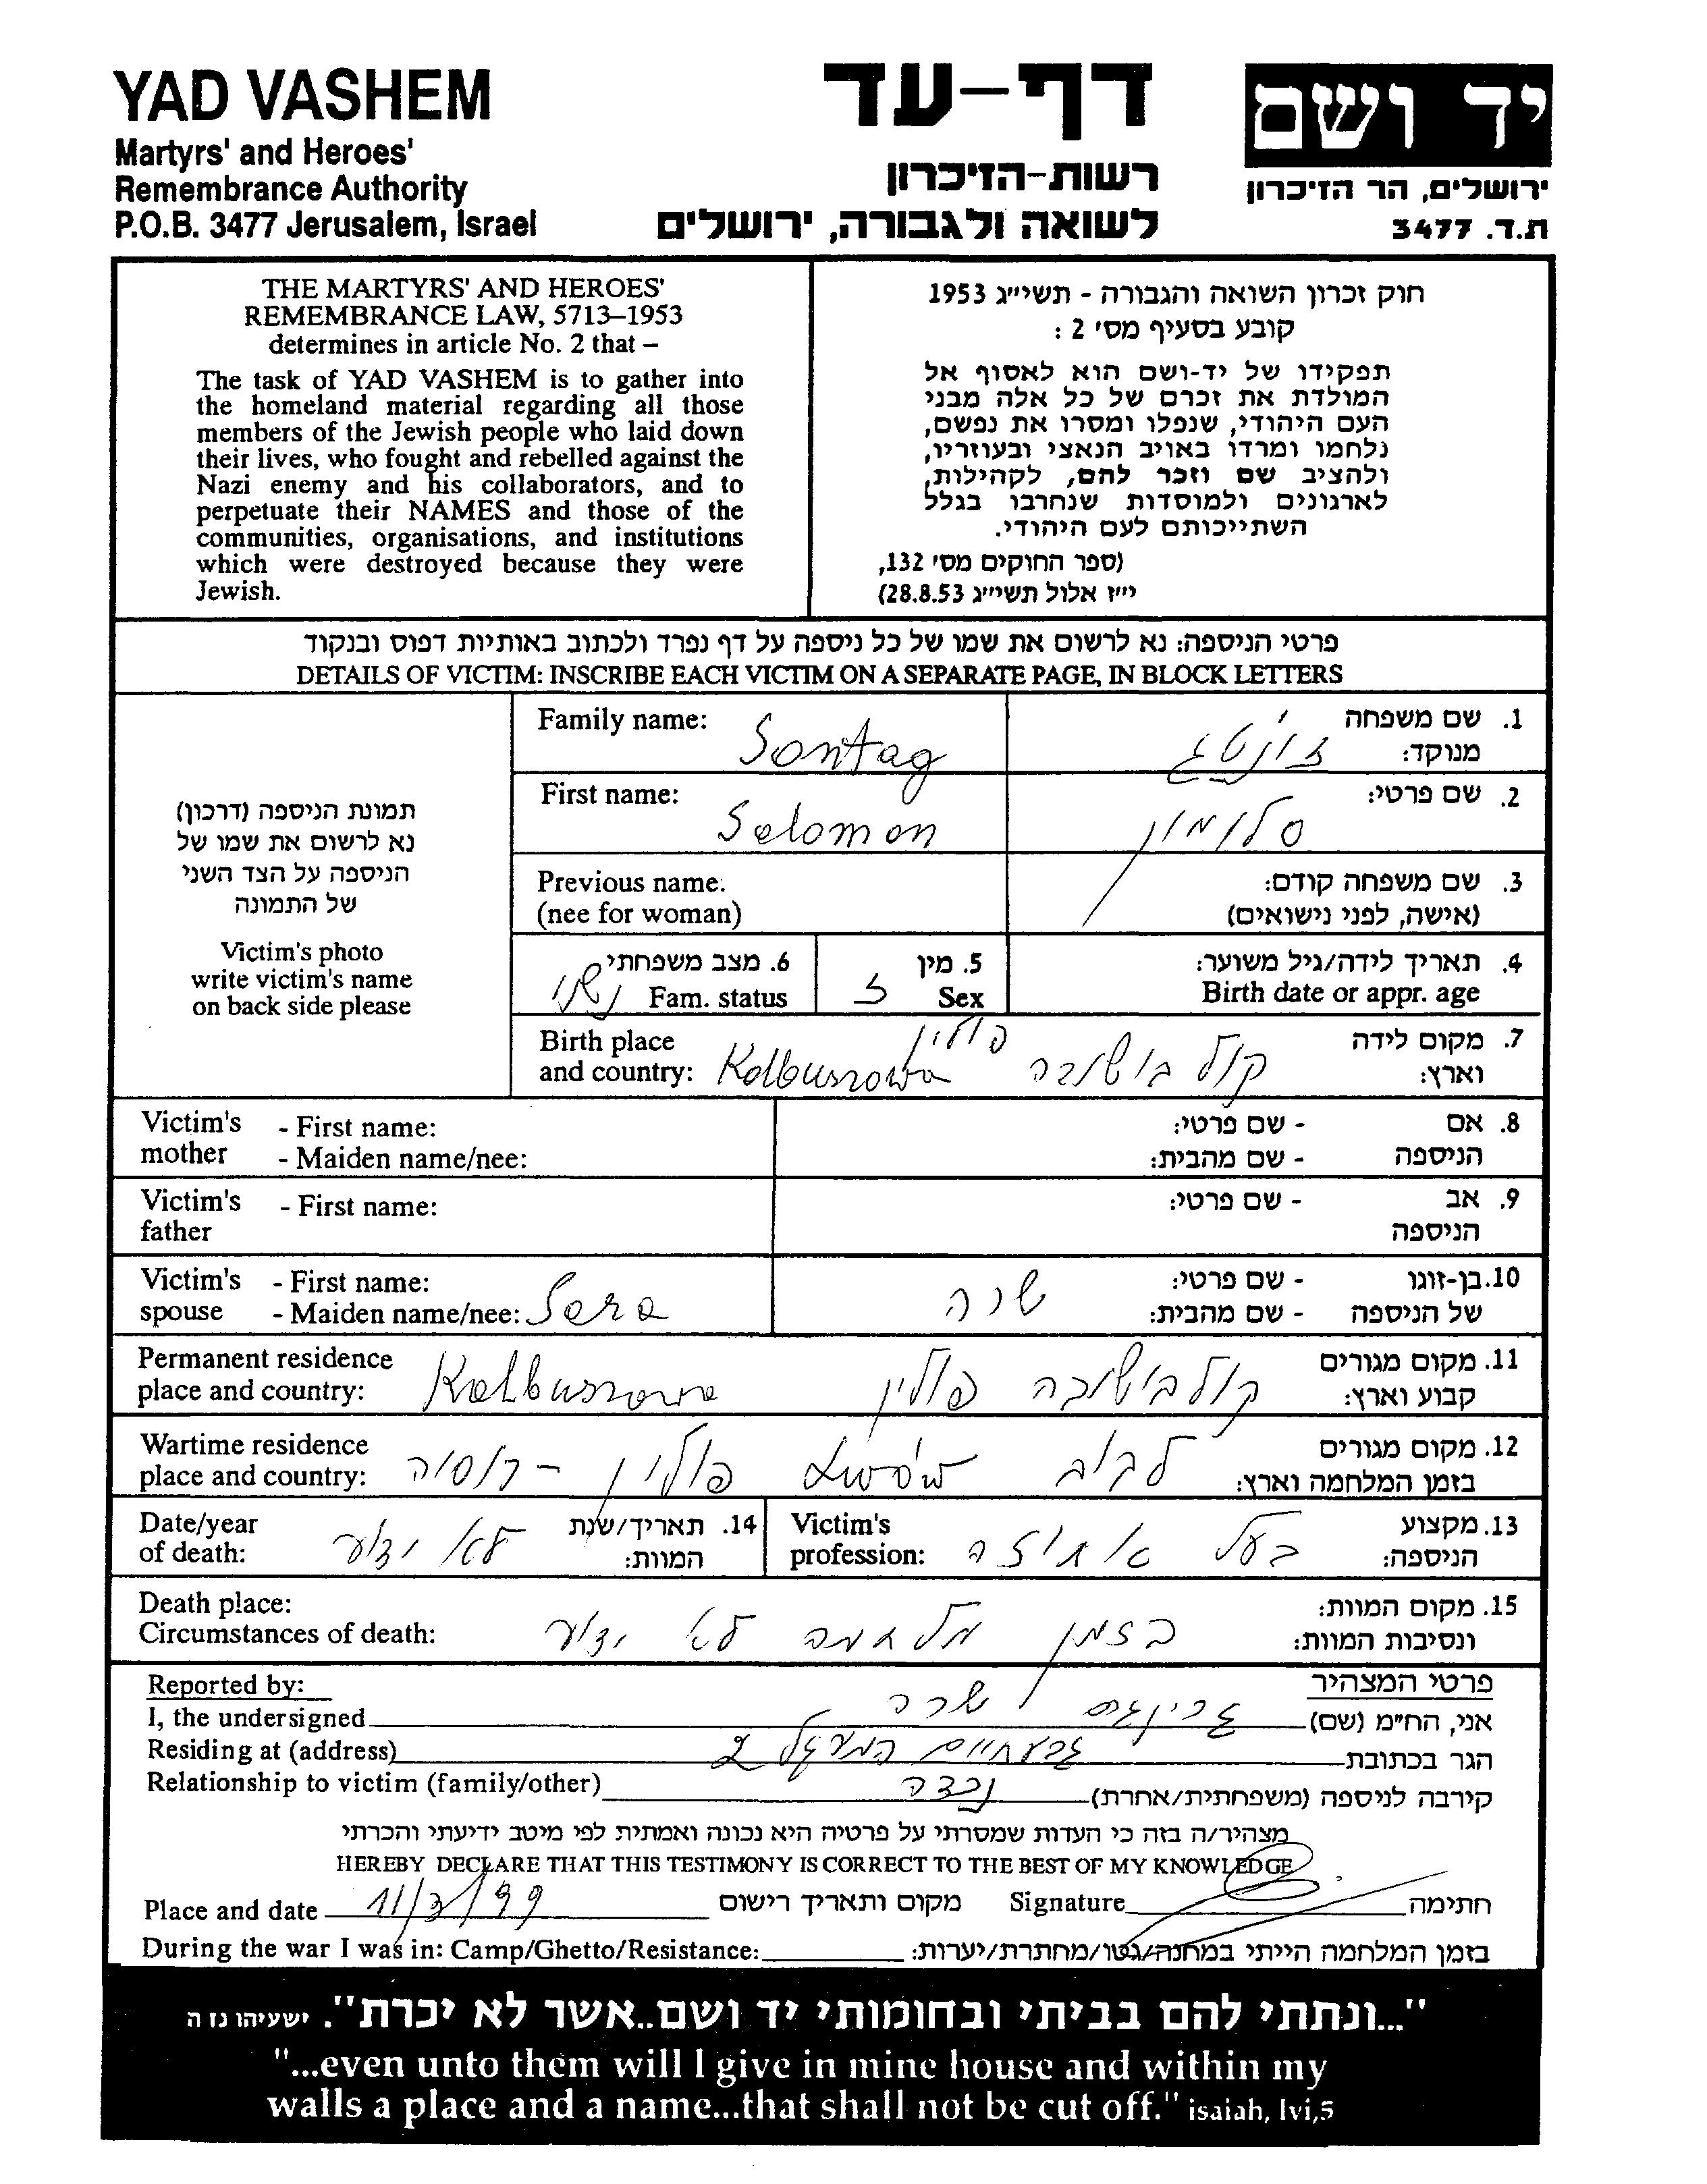 YAD VASHEM
Martyrs' and Heroes'
Remembrance Authority
P.O.B. 3477 Jerusalem, Israel
דף-עד
רשות-הזיכרון
לשואה ולגבורה, ירושלים
יד ושם
ירושלים, הר הזיכרון
ת.ד. 3477
THE MARTYRS' AND HEROES'
REMEMBRANCE LAW, 5713–1953
determines in article No. 2 that –
The task of YAD VASHEM is to gather into
the homeland material regarding all those
members of the Jewish people who laid down
their lives, who fought and rebelled against the
Nazi enemy and his collaborators, and to
perpetuate their NAMES and those of the
communities, organisations, and institutions
which were destroyed because they were
Jewish.
חוק זכרון השואה והגבורה - תשי״ג 1953
קובע בסעיף מס׳ 2 :
תפקידו של יד-ושם הוא לאסוף אל
המולדת את זכרם של כל אלה מבני
העם היהודי, שנפלו ומסרו את נפשם,
נלחמו ומרדו באויב הנאצי ובעוזריו,
ולהציב שם וזכר להם, לקהילות,
לארגונים ולמוסדות שנחרבו בגלל
השתייכותם לעם היהודי.
(ספר החוקים מס׳ 132,
י״ז אלול תשי״ג 28.8.53)
פרטי הניספה: נא לרשום את שמו של כל ניספה על דף נפרד ולכתוב באותיות דפוס ובנקוד
DETAILS OF VICTIM: INSCRIBE EACH VICTIM ON A SEPARATE PAGE, IN BLOCK LETTERS
תמונת הניספה (דרכון)
נא לרשום את שמו של
הניספה על הצד השני
של התמונה
Victim's photo
write victim's name
on back side please
Family name: Sontag
1. שם משפחה מנוקד: זונטג
First name: Solomon
2. שם פרטי: סלומון
Previous name:
(nee for woman)
3. שם משפחה קודם:
(אישה, לפני נישואים)
4. תאריך לידה/גיל משוער:
Birth date or appr. age
5. מין Sex ז
6. מצב משפחתי Fam. status נשוי
Birth place
and country: Kolbuszowa פולין
7. מקום לידה וארץ: קולבושובה
Victim's mother - First name:
- Maiden name/nee:
8. אם הניספה - שם פרטי:
- שם מהבית:
Victim's father - First name:
9. אב הניספה - שם פרטי:
Victim's spouse - First name:
- Maiden name/nee: Sara
10. בן-זוגו של הניספה - שם פרטי: שרה
- שם מהבית:
Permanent residence
place and country: Kolbuszowa
11. מקום מגורים קבוע וארץ: קולבושובה פולין
Wartime residence
place and country:
12. מקום מגורים בזמן המלחמה וארץ: לבוב Lwów פולין - רוסיה
Date/year
of death:
14. תאריך/שנת המוות: לא ידוע
Victim's
profession:
13. מקצוע הניספה: בעל אחוזה
Death place:
Circumstances of death:
15. מקום המוות:
ונסיבות המוות: בזמן מלחמה לא ידוע
Reported by:
פרטי המצהיר
I, the undersigned
אני, הח״מ (שם) שרה
Residing at (address)
הגר בכתובת גבעתיים
Relationship to victim (family/other)
קירבה לניספה (משפחתית/אחרת) נכדה
מצהיר/ה בזה כי העדות שמסרתי על פרטיה היא נכונה ואמתית לפי מיטב ידיעתי והכרתי
HEREBY DECLARE THAT THIS TESTIMONY IS CORRECT TO THE BEST OF MY KNOWLEDGE
Place and date 11/3/99 מקום ותאריך רישום
Signature חתימה
During the war I was in: Camp/Ghetto/Resistance:
בזמן המלחמה הייתי במחנה/גטו/מחתרת/יערות:
"...ונתתי להם בביתי ובחומותי יד ושם..אשר לא יכרת". ישעיהו נז ה
"...even unto them will I give in mine house and within my
walls a place and a name...that shall not be cut off." isaiah, lvi,5